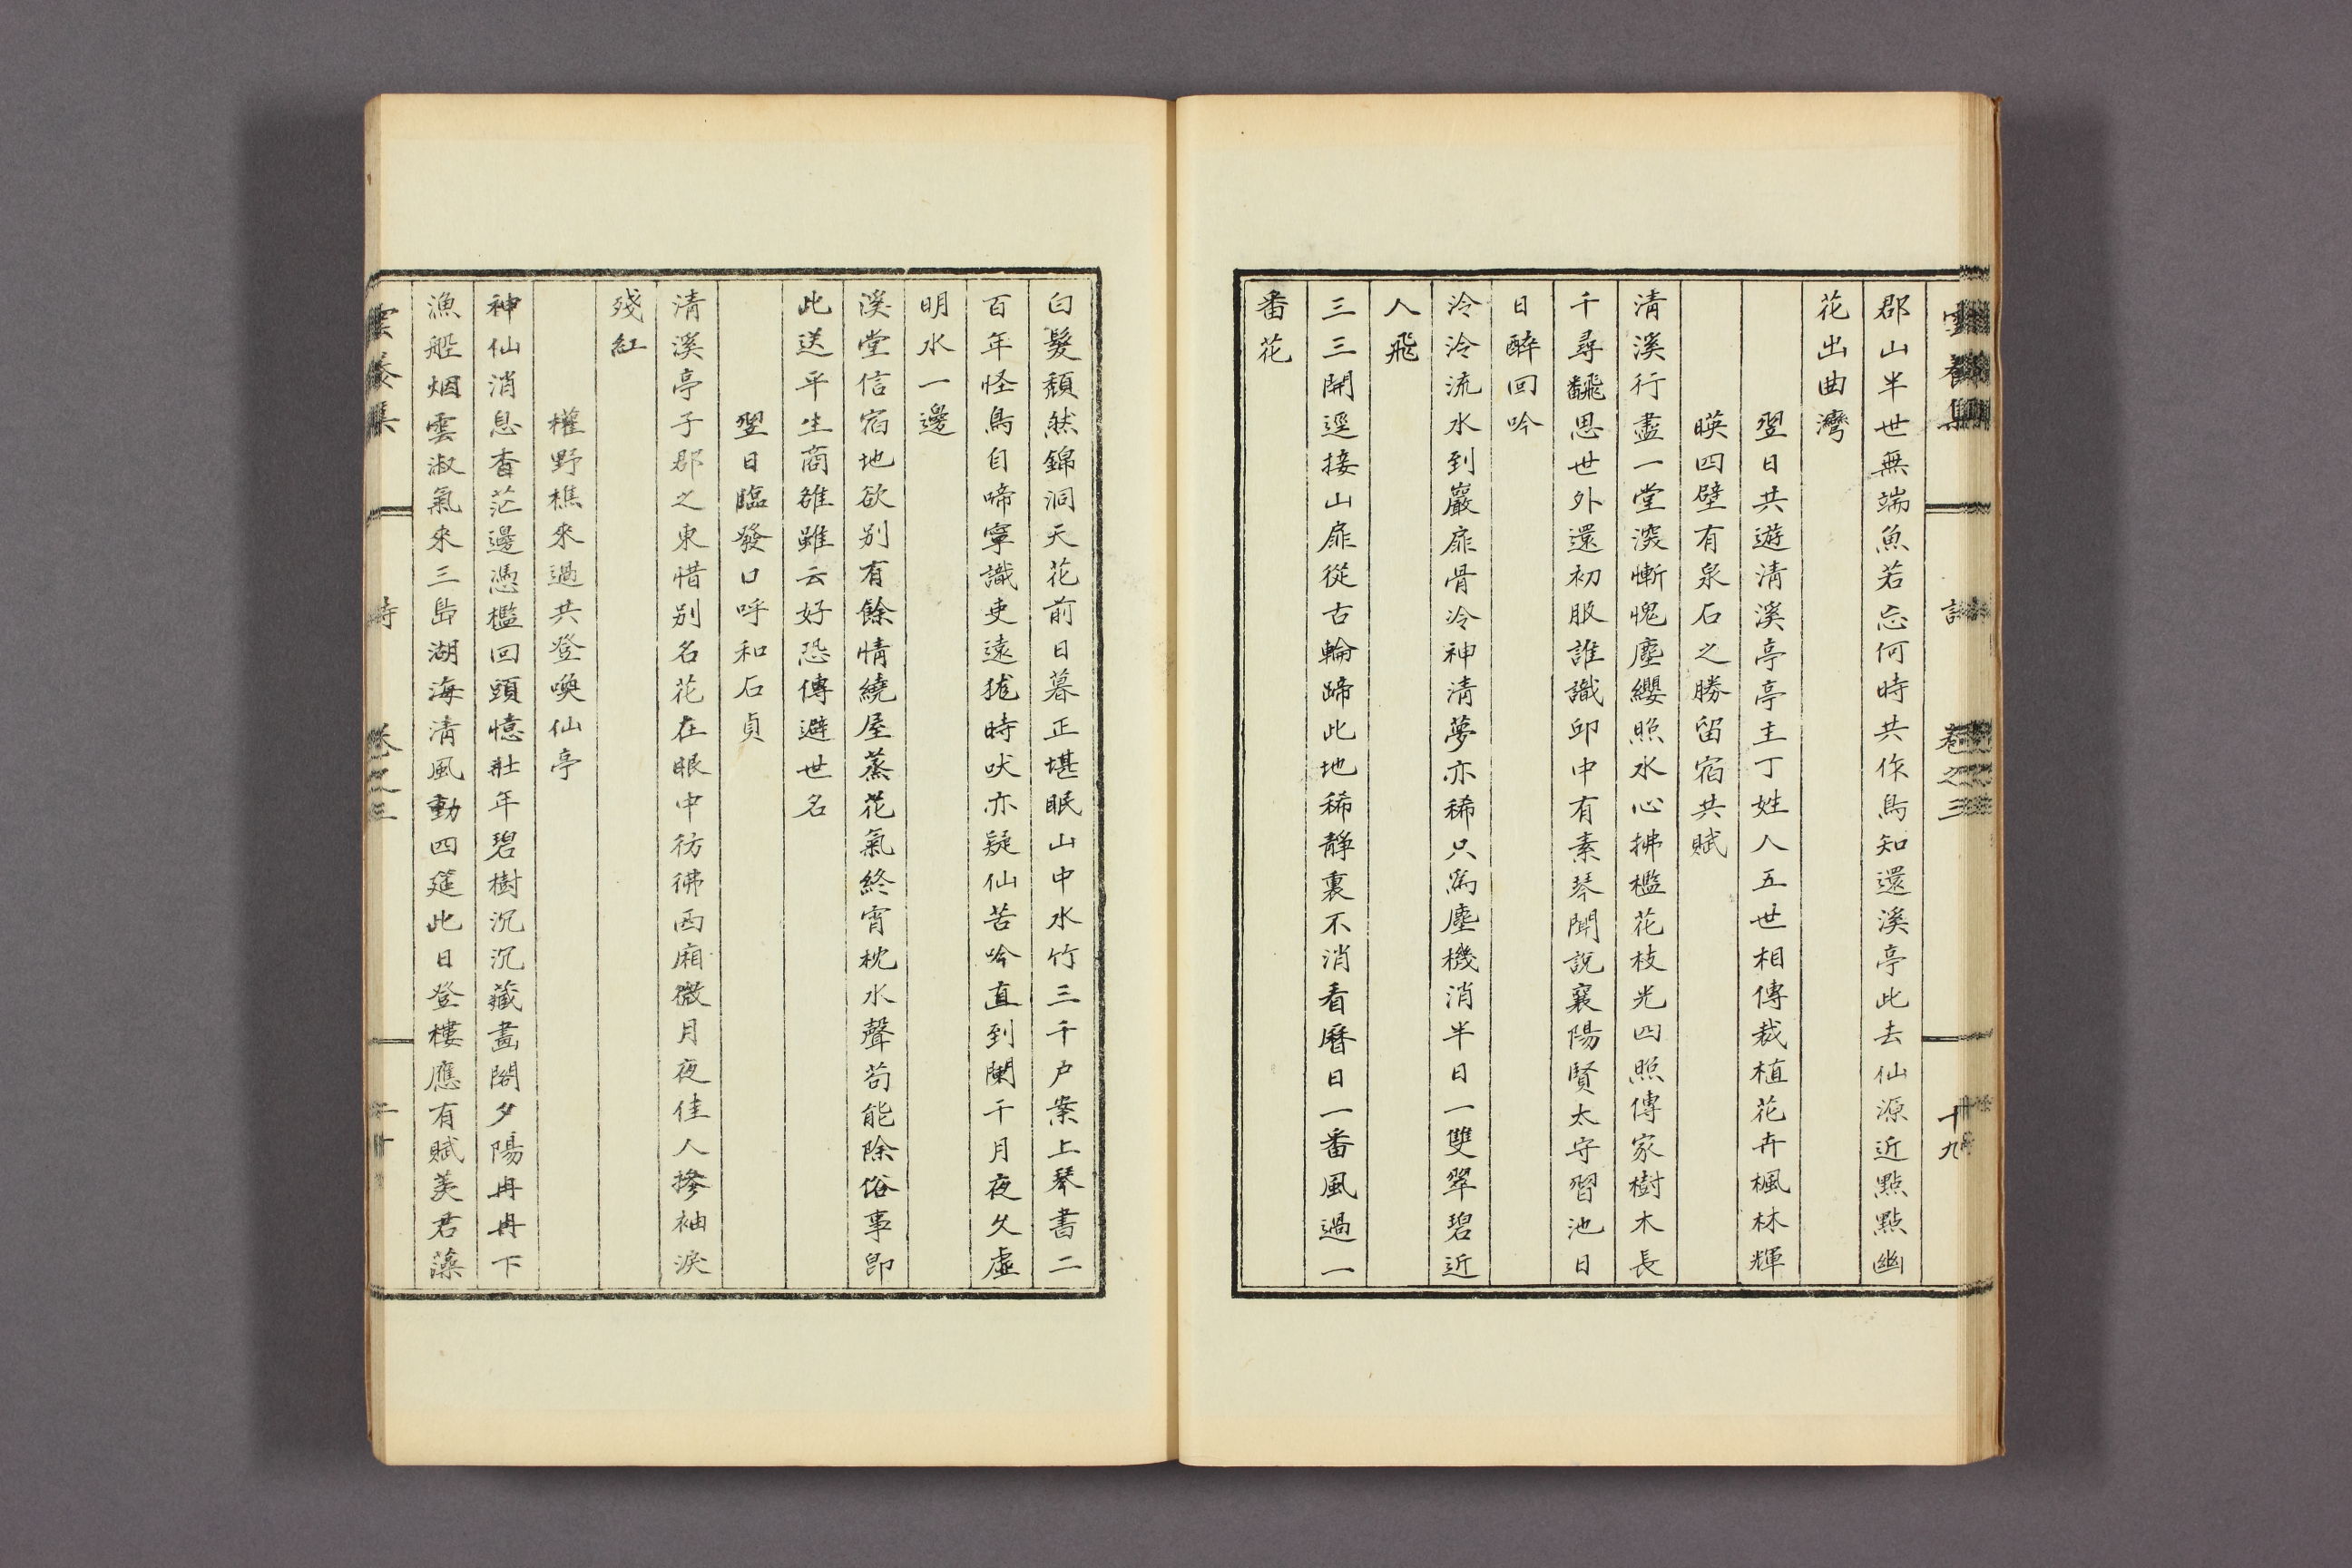 雲養集 詩 卷之三 十九
郡山半世無端魚若忘何時共作鳥知還溪亭此去仙源近點點幽
花出曲灣
翌日共遊淸溪亭亭主丁姓人五世相傳栽植花卉楓林輝
暎四壁有泉石之勝留宿共賦
淸溪行盡一堂深慚愧塵纓照水心拂檻花枝光四照傳家樹木長
千尋飜思世外還初服誰識邱中有素琴聞說襄陽賢太守習池日
日醉回吟
泠泠流水到巖扉骨冷神淸夢亦稀只爲塵機消半日一雙翠碧近
人飛
三三開逕接山扉從古輪蹄此地稀靜裏不消看曆日一番風過一
番花
白髮頹然錦洞天花前日暮正堪眠山中水竹三千戶案上琴書二
百年怪鳥自啼寧識吏遠狵時吠亦疑仙苦吟直到闌干月夜久虛
明水一邊
溪堂信宿地欲別有餘情繞屋蒸花氣終宵枕水聲苟能除俗事卽
此送平生商雒雖云好恐傳避世名
翌日臨發口呼和石貞
淸溪亭子郡之東惜別名花在眼中彷彿西廂微月夜佳人摻袖淚
殘紅
權野樵來過共登喚仙亭
神仙消息杳茫邊憑檻回頭憶壯年碧樹沉沉藏畫閣夕陽冉冉下
漁船烟雲淑氣來三島湖海淸風動四筵此日登樓應有賦羨君藻
雲養集 詩 卷之三